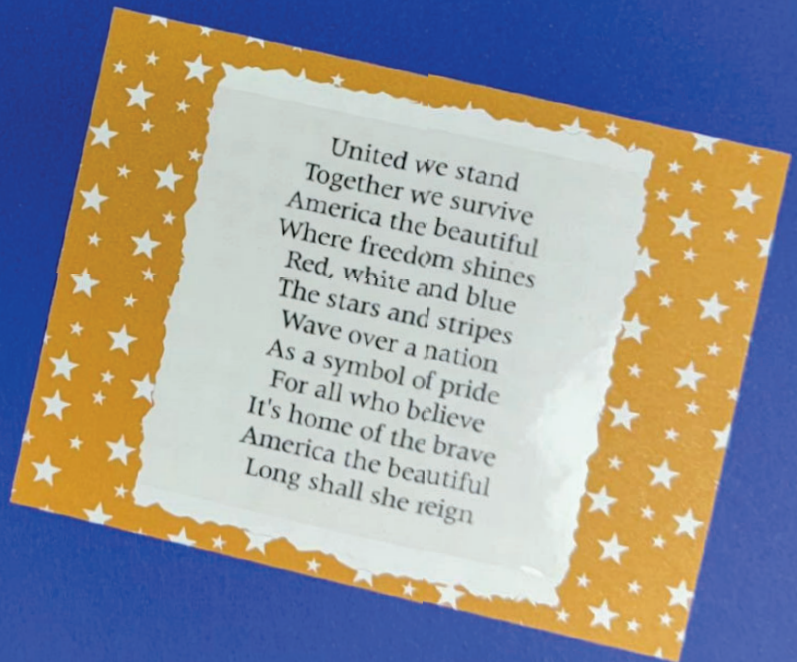 United we stand
Together we survive
America the beautiful
Where freedom shines
Red, white and blue
The stars and stripes
Wave over a nation
As a symbol of pride
For all who believe
It's home of the brave
America the beautiful
Long shall she reign